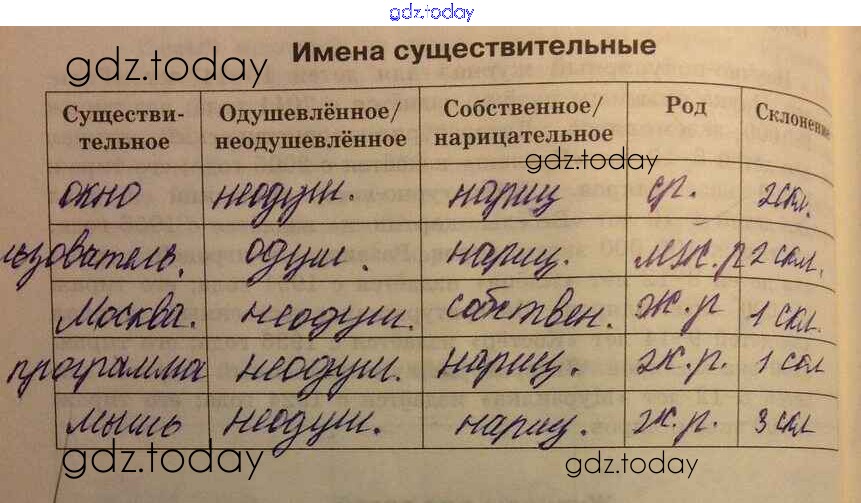 gdz.today
Имена существительные
gdz.today
Существи- Одушевлённое/ Собственное/ Род Склонение
тельное неодушевлённое нарицательное
gdz.today
окно неодуш. нариц ср. 2 скл.
льзователь. одуш. нариц. м.р 2 скл.
Москва. неодуш. собствен. ж.р 1 скл.
программа неодуш. нариц. ж.р. 1 скл
мышь неодуш. нариц. ж.р. 3 скл
gdz.today gdz.today